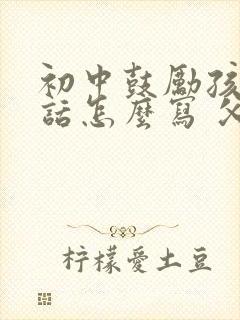 初中鼓励孩
話怎麼寫 父
柠檬愛土豆